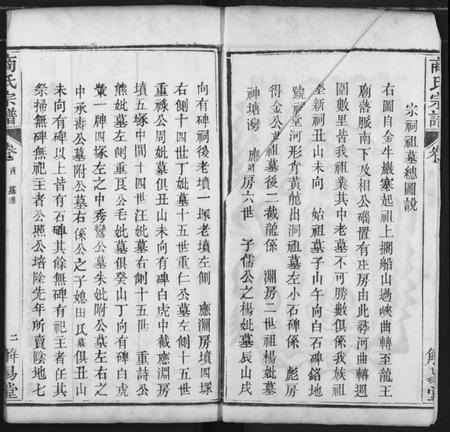 商氏宗譜
卷
宗祠祖墓總圖說
右圖自金牛巖寨起祖上擱船山過峽曲轉至龍王
廟落脈南下及相公磵置有庄房由此彝河曲轉週
圍數里皆我祖業其中老墓不可勝數俱係我族祖
塋新祠丑山未向 始祖墓子山午向白石碑銘地
號祠堂河形有黃龍出洞祖墓左小石碑係 彪房
得金公世祖墓後二截龍係 淵房二世祖楊妣墓
神塘灣 應 房六世 子儒公之楊妣墓辰山戌
向有碑祠後老墳一塚老墳左側 應淵房墳四塚
右側十四世丁妣墓十五世重仁公墓左側十五世
重祿公周妣墓俱丑山未向有碑白虎中截應淵房
墳五塚中間十四世汪妣墓右側十五世 重詩公
熊妣墓左側重艮公毛妣墓俱癸山丁向有碑白虎
一牌四塚左之中秀鸞公墓朱妣附公墓左右之
中承書公墓附公墓右係公之子娘田氏墓俱丑山
未向有碑以上皆有石碑其餘無碑有祀王者任其
祭掃無碑無祀王者公照公培除先年所賣陰地七
商氏宗譜
卷
首 墓圖
二 解易堂
解易堂